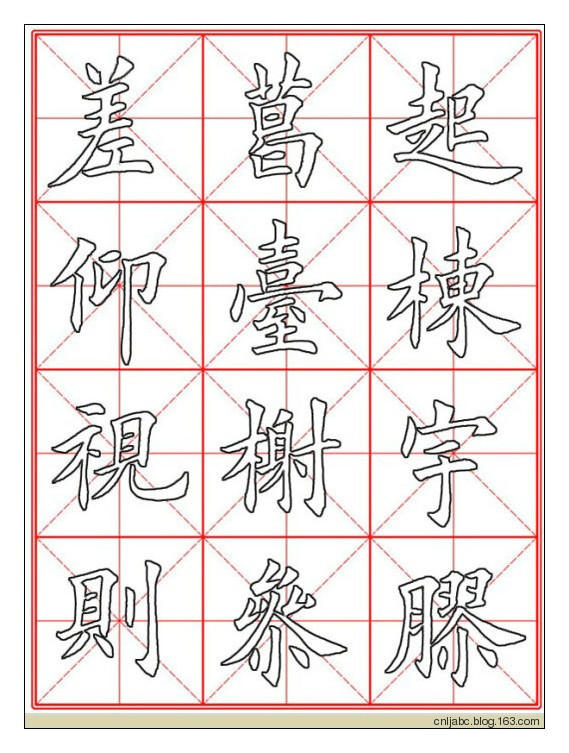 起棟宇膠
葛臺榭參
差仰視則
cnljabc.blog.163.com